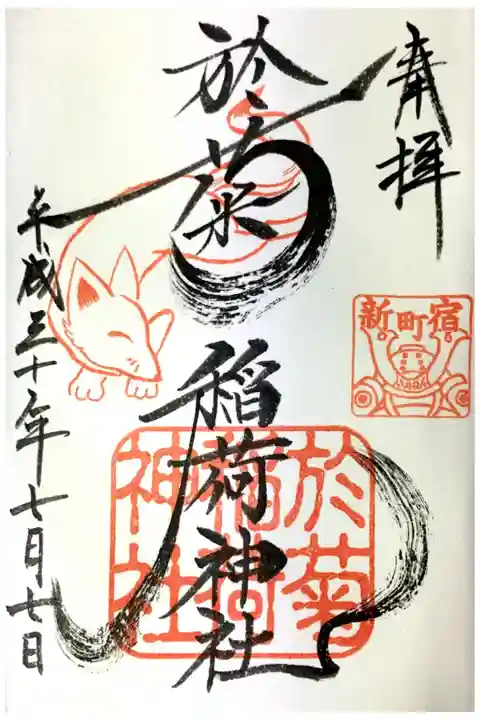 奉拝
新町宿
於菊
稲荷神社
於菊
稲荷
神社
平成三十年七月七日